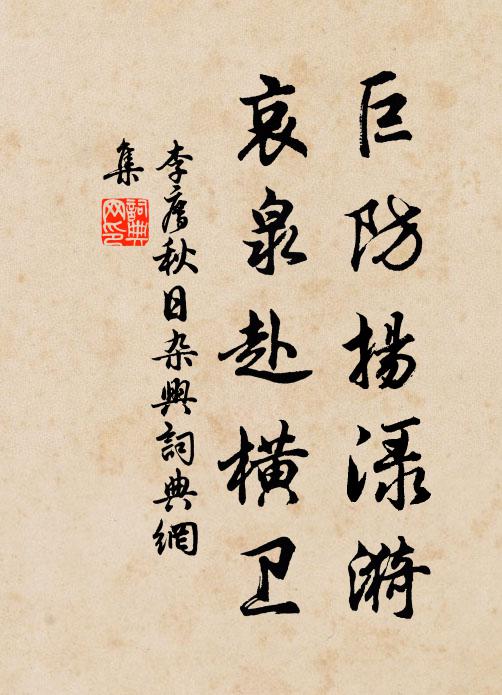 巨防揚淥漪
哀泉赴橫卫
李廌秋日杂興詞典網
集
詞典
网印